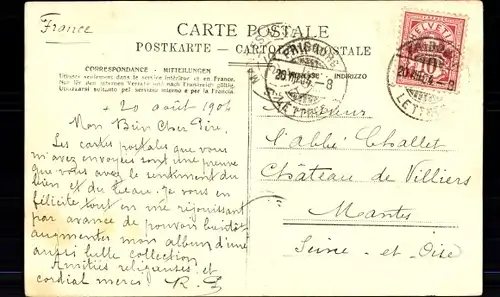 France
CARTE POSTALE
POSTKARTE — CARTOLINA POSTALE
CORRESPONDANCE - MITTEILUNGEN
INDIRIZZO
Utilisé seulement dans le service intérieur et en France.
Nur für den internen Verkehr und nach Frankreich gültig.
HELVETIA
10
FRIBOURG
20 VIII 04 - 8
LETTRES
+ 20 août 1904
Mon Bien Cher Père.
Les cartes postales que vous
m'avez envoyées sont une preuve
que vous avez le sentiment du
bien et du beau. Je vous en
félicite tout en me réjouissant
par avance de pouvoir bientôt
augmenter mon album d'une
aussi belle collection.
Amitiés religieuses et
cordial merci
Monsieur
l'abbé Challet
Château de Villiers
Mantes
Seine - et - Oise